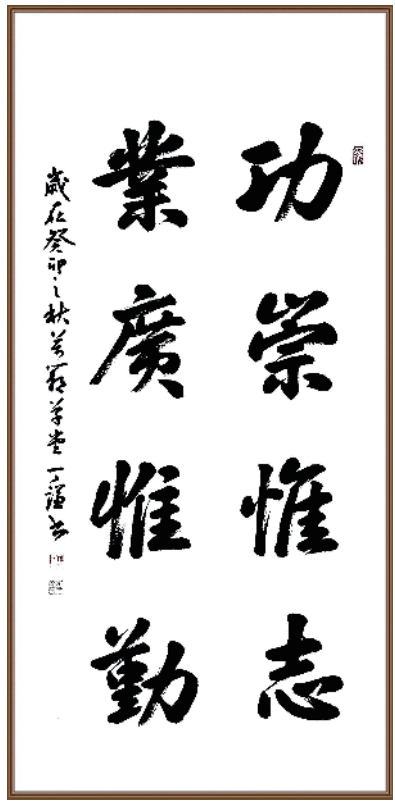 功崇惟志
業廣惟勤
歲在癸卯之秋